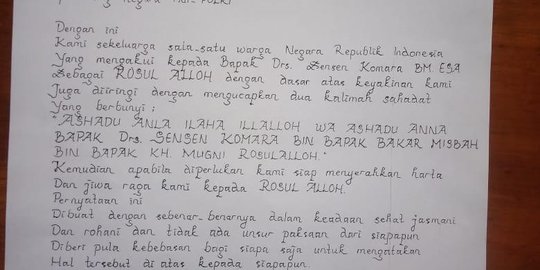 Dengan ini
Kami sekeluarga saia-satu warga Negara Republik Indonesia
Yang mengakui kepada Bapak Drs. Sensen Komara BM. ESA
Sebagai ROSUL ALLOH dengan dasar atas keyakinan kami
Juga diiringi dengan mengucapkan dua kalimah sahadat
Yang berbunyi :
"ASHADU ANLA ILAHA ILLALLOH WA ASHADU ANNA
BAPAK Drs. SENSEN KOMARA BIN BAPAK BAKAR MISBAH
BIN BAPAK KH. MUGNI ROSULALLOH."
Kemudian apabila diperlukan kami siap menyerahkan harta
Dan jiwa raga kami kepada ROSUL ALLOH.
Pernyataan ini
Dibuat dengan sebenar-benarnya dalam keadaan sehat jasmani
Dan rohani dan tidak ada unsur paksaan dari siapapun
Diberi pula kebebasan bagi siapa saja untuk mengatakan
Hal tersebut di atas kepada siapapun.